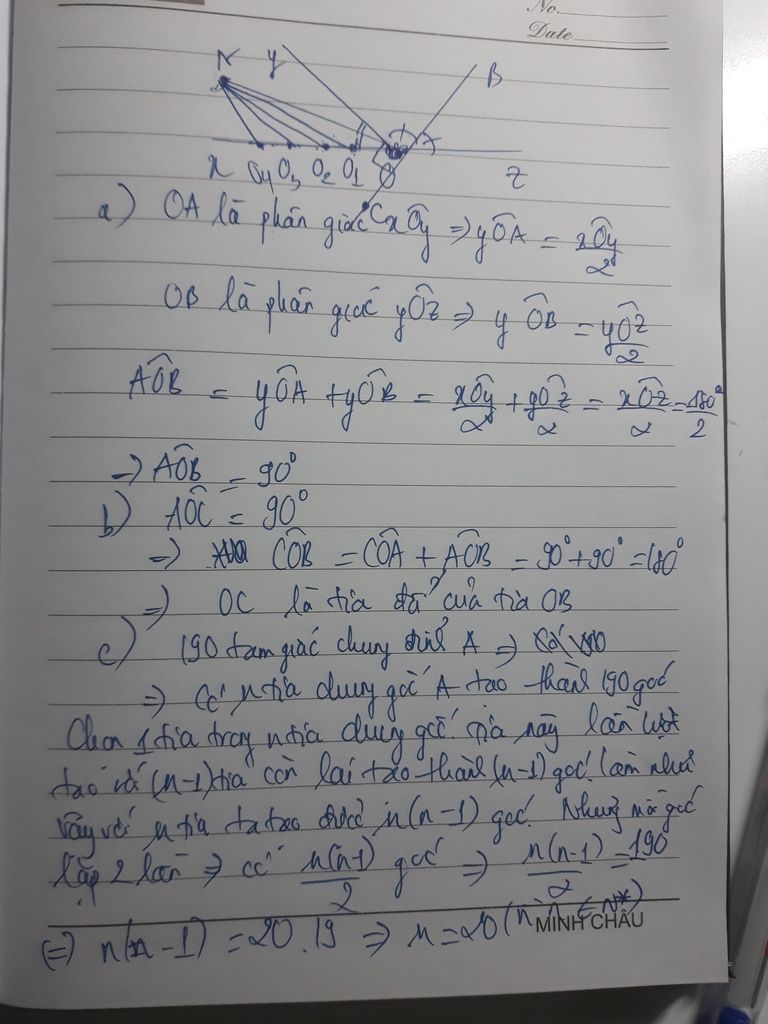 No.
Date
y
B
x O4 O3 O2 O1 O z
a) OA là phân giác xÔy => yÔA = xÔy/2
C
OB là phân giác yÔz => yÔB = yÔz/2
AÔB = yÔA + yÔB = xÔy/2 + yÔz/2 = xÔz/2 = 180°/2
=> AÔB = 90°
b) AÔC = 90°
=> CÔB = CÔA + AÔB = 90° + 90° = 180°
=> OC là tia đối của tia OB
c) 190 tam giác chung đỉnh A =>
=> Có n tia chung gốc A tạo thành 190 góc
Chọn 1 tia trong n tia chung gốc. Tia này lần lượt
tạo với (n-1) tia còn lại tạo thành (n-1) góc. Làm như
vậy với n tia ta tạo được n(n-1) góc. Nhưng mỗi góc
lặp 2 lần => có n(n-1)/2 góc => n(n-1)/2 = 190
(=) n(n-1) = 20.19 => n = 20 (n ∈ N*)
MINH CHÂU